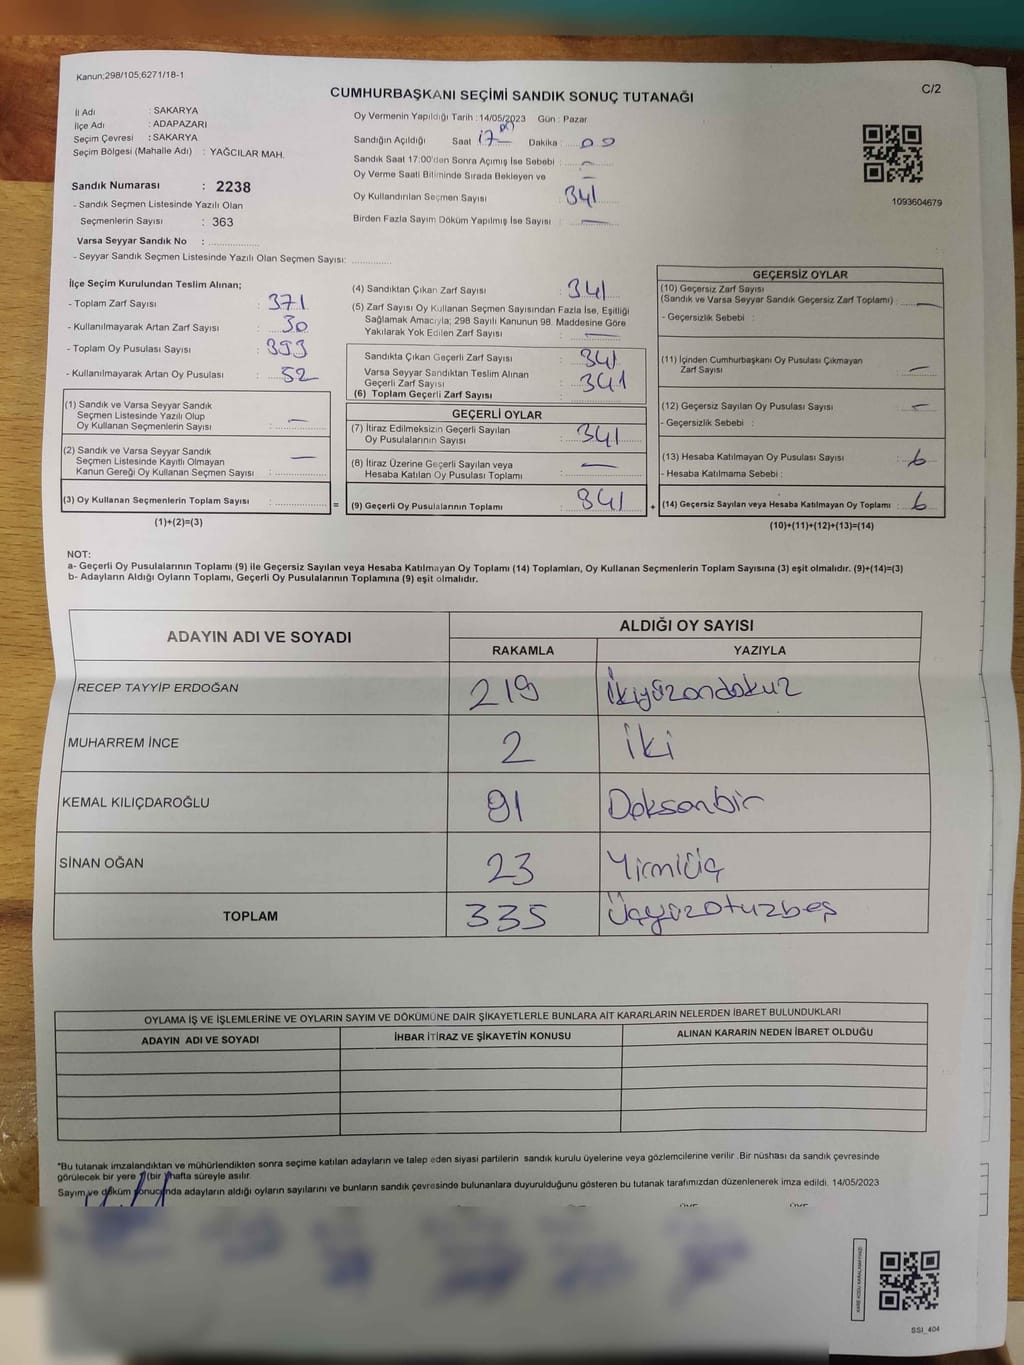 Kanun;298/105;6271/18-1
C/2
CUMHURBAŞKANI SEÇİMİ SANDIK SONUÇ TUTANAĞI
İl Adı : SAKARYA
İlçe Adı : ADAPAZARI
Seçim Çevresi : SAKARYA
Seçim Bölgesi (Mahalle Adı) : YAĞCILAR MAH.
Sandık Numarası : 2238
- Sandık Seçmen Listesinde Yazılı Olan
Seçmenlerin Sayısı : 363
Varsa Seyyar Sandık No : ................
- Seyyar Sandık Seçmen Listesinde Yazılı Olan Seçmen Sayısı: ............
Oy Vermenin Yapıldığı Tarih : 14/05/2023 Gün : Pazar
Sandığın Açıldığı Saat 17 00 Dakika : 00
Sandık Saat 17:00'den Sonra Açımış İse Sebebi : —
Oy Verme Saati Bitiminde Sırada Bekleyen ve —
Oy Kullandırılan Seçmen Sayısı : 341
Birden Fazla Sayım Döküm Yapılmış İse Sayısı : —
1093604679
İlçe Seçim Kurulundan Teslim Alınan;
- Toplam Zarf Sayısı : 371
- Kullanılmayarak Artan Zarf Sayısı : 30
- Toplam Oy Pusulası Sayısı : 393
- Kullanılmayarak Artan Oy Pusulası : 52
(1) Sandık ve Varsa Seyyar Sandık
Seçmen Listesinde Yazılı Olup
Oy Kullanan Seçmenlerin Sayısı : —
(2) Sandık ve Varsa Seyyar Sandık
Seçmen Listesinde Kayıtlı Olmayan
Kanun Gereği Oy Kullanan Seçmen Sayısı : —
(3) Oy Kullanan Seçmenlerin Toplam Sayısı : ............ =
(1)+(2)=(3)
(4) Sandıktan Çıkan Zarf Sayısı : 341
(5) Zarf Sayısı Oy Kullanan Seçmen Sayısından Fazla İse, Eşitliği
Sağlamak Amacıyla; 298 Sayılı Kanunun 98. Maddesine Göre
Yakılarak Yok Edilen Zarf Sayısı : —
Sandıkta Çıkan Geçerli Zarf Sayısı : 341
Varsa Seyyar Sandıktan Teslim Alınan
Geçerli Zarf Sayısı : 341
(6) Toplam Geçerli Zarf Sayısı :
GEÇERLİ OYLAR
(7) İtiraz Edilmeksizin Geçerli Sayılan
Oy Pusulalarının Sayısı : 341
(8) İtiraz Üzerine Geçerli Sayılan veya
Hesaba Katılan Oy Pusulası Toplamı : —
(9) Geçerli Oy Pusulalarının Toplamı : 341 +
GEÇERSİZ OYLAR
(10) Geçersiz Zarf Sayısı
(Sandık ve Varsa Seyyar Sandık Geçersiz Zarf Toplamı) : —
- Geçersizlik Sebebi :
(11) İçinden Cumhurbaşkanı Oy Pusulası Çıkmayan
Zarf Sayısı : —
(12) Geçersiz Sayılan Oy Pusulası Sayısı : —
- Geçersizlik Sebebi :
(13) Hesaba Katılmayan Oy Pusulası Sayısı : 6
- Hesaba Katılmama Sebebi :
(14) Geçersiz Sayılan veya Hesaba Katılmayan Oy Toplamı : 6
(10)+(11)+(12)+(13)=(14)
NOT:
a- Geçerli Oy Pusulalarının Toplamı (9) ile Geçersiz Sayılan veya Hesaba Katılmayan Oy Toplamı (14) Toplamları, Oy Kullanan Seçmenlerin Toplam Sayısına (3) eşit olmalıdır. (9)+(14)=(3)
b- Adayların Aldığı Oyların Toplamı, Geçerli Oy Pusulalarının Toplamına (9) eşit olmalıdır.
ADAYIN ADI VE SOYADI
ALDIĞI OY SAYISI
RAKAMLA YAZIYLA
RECEP TAYYİP ERDOĞAN 219 İkiyüzondokuz
MUHARREM İNCE 2 iki
KEMAL KILIÇDAROĞLU 91 Doksanbir
SİNAN OĞAN 23 Yirmiüç
TOPLAM 335 Üçyüzotuzbeş
OYLAMA İŞ VE İŞLEMLERİNE VE OYLARIN SAYIM VE DÖKÜMÜNE DAİR ŞİKAYETLERLE BUNLARA AİT KARARLARIN NELERDEN İBARET BULUNDUKLARI
ADAYIN ADI VE SOYADI İHBAR İTİRAZ VE ŞİKAYETİN KONUSU ALINAN KARARIN NEDEN İBARET OLDUĞU
*Bu tutanak imzalandıktan ve mühürlendikten sonra seçime katılan adayların ve talep eden siyasi partilerin sandık kurulu üyelerine veya gözlemcilerine verilir .Bir nüshası da sandık çevresinde
görülecek bir yere (bir) hafta süreyle asılır.
Sayım ve döküm sonucunda adayların aldığı oyların sayılarını ve bunların sandık çevresinde bulunanlara duyurulduğunu gösteren bu tutanak tarafımızdan düzenlenerek imza edildi. 14/05/2023
KARE KODU KARALAMAYINIZ!
SSI_404